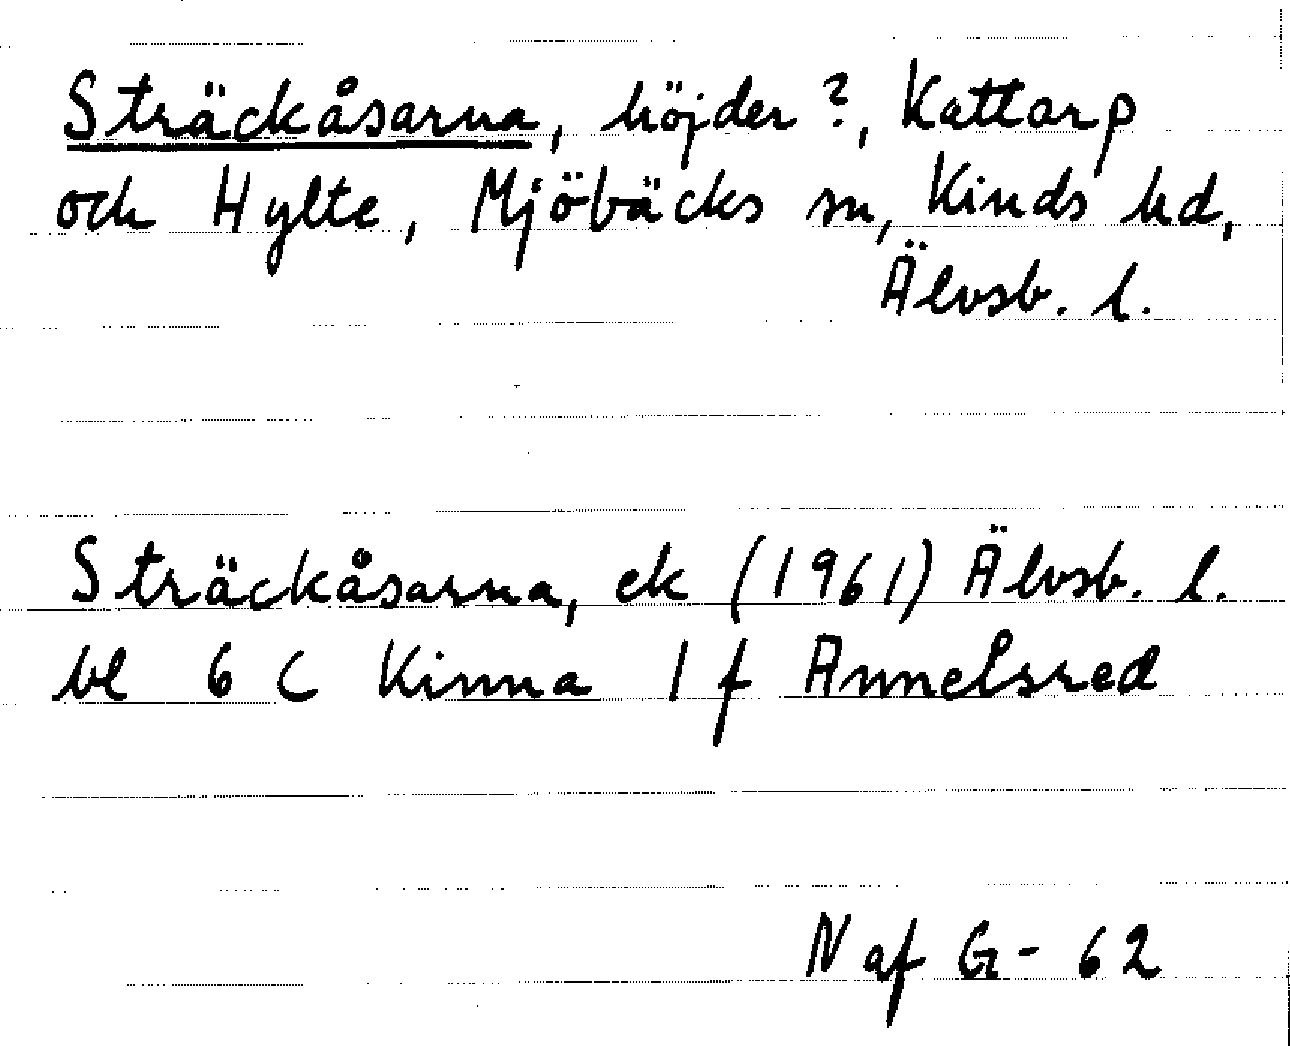 Sträckåsarna, höjder?, Kattarp
och Hylte, Mjöbäcks sn, Kinds hd,
Älvsb. l.
Sträckåsarna, ek (1961) Älvsb. l.
bl 6 C Kinna 1 f Annelsred
N af G - 62